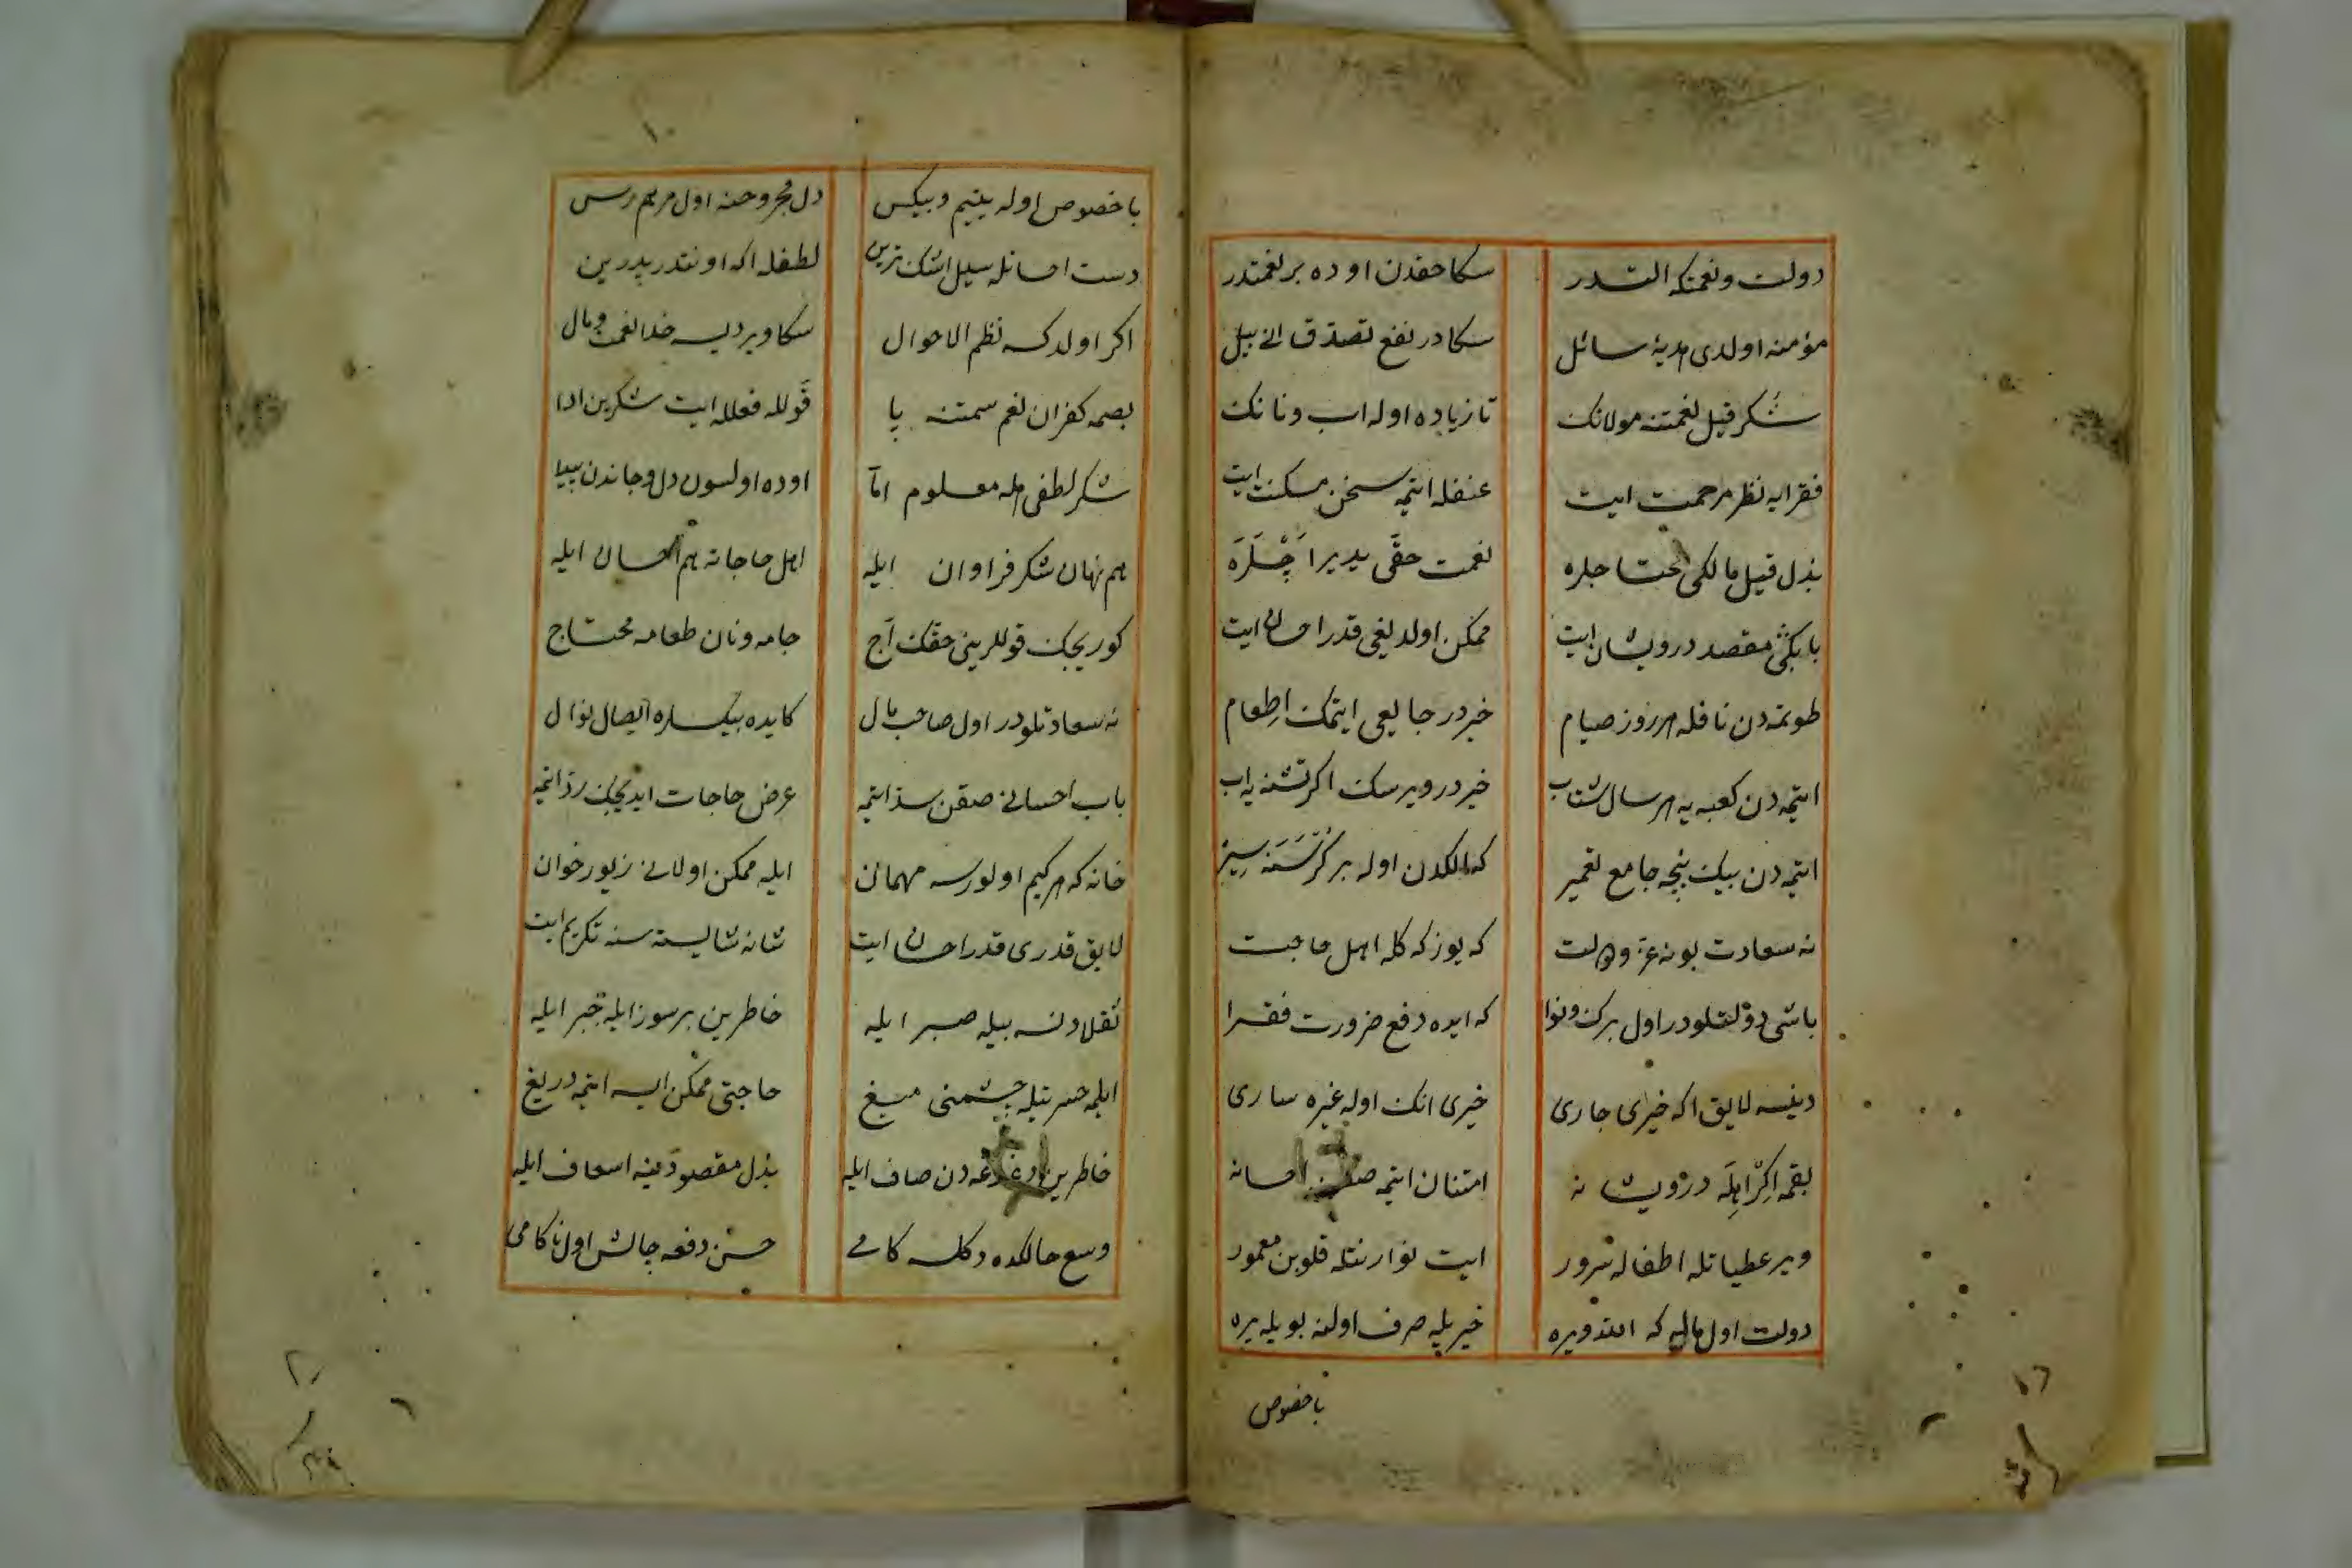 دولت و نعمتكه التدر
سكا حقدن اوده بر نعمتدر
مؤمنه اولدی هدیۀ سائل
سكادر نفع تصدق انی بیل
شكر قیل نعمتنه مولانك
تا زیاده اوله اب و نانك
فقرایه نظر مرحمت ایت
عنفله ایتمه سخن مسكنت ایت
بذل قیل مالكی محتاجلره
نعمت حقی یدیر اَچْلَرَه
مقصد درویشان ایت
ممكن اولدیغی قدر احسان ایت
طوتمه دن نافله هر روز صیام
خیردر جایعی ایتمك اطعام
ایتمه دن كعبه یه هر سال شتاب
خیردر ویرسك اكر تشنه یه اب
ایتمه دن بیك بنجه جامع تعمیر
كه الكدن اوله بر كرسنه سیر
نه سعادت بو نه عز و دولت
كه یوزكه كله اهل حاجت
باشی دولتلودر اول برك و نوا
كه ایده دفع ضرورت فقرا
دینسه لایق اكه خیری جاری
خیری انك اوله غیره ساری
بقمه اكراهله درویشانه
امتنان ایتمه احسانه
ویر عطیاتله اطفاله سرور
ایت نوازشله قلوبن معمور
دولت اول مالیه كه الله ویره
خیر یله صرف اولنه بویله یره
باخصوص
١٠
باخصوص اوله یتیم و بیكس
دل مجروحنه اول مرهم رس
دست احسانله سیل اشك ترین
لطفله اكه اونتدر پدرین
اكر اولدكسه نظم الاحوال
سكا ویردیسه خدا نعمت و مال
بصمه كفران نعم سمتنه پا
قوللە فعلله ایت شكرین ادا
شكر لطفی هله معلوم اما
اوده اولسون دل و جاندن پیدا
هم نهان شكر فراوان ایله
اهل حاجاته هم احسان ایله
كوریجك قوللرینی حقك آج
جامه و نان طعامه محتاج
نه سعادتلودر اول صاحب مال
كه ایده بیكسلره ایصال نوال
باب احسانی صقن سد ایتمه
عرض حاجات ایدیجك رد ایتمه
خانه كه هر كیم اولورسه مهمان
ایله ممكن اولانی زیور خوان
لایق قدری قدر احسان ایت
شانه شایسته سنه تكریم ایت
ثقلا دنسه بیله صبر ایله
خاطرین بر سوز ایله جبر ایله
ایلمه حسرتیله چشمنی میغ
حاجتی ممكن ایسه ایتمه دریغ
خاطرین دغدغه دن صاف ایله
بذل مقصودینه اسعاف ایله
وسع حالكده دكلسه كامی
حسن دفعه چالش اول ناكامی